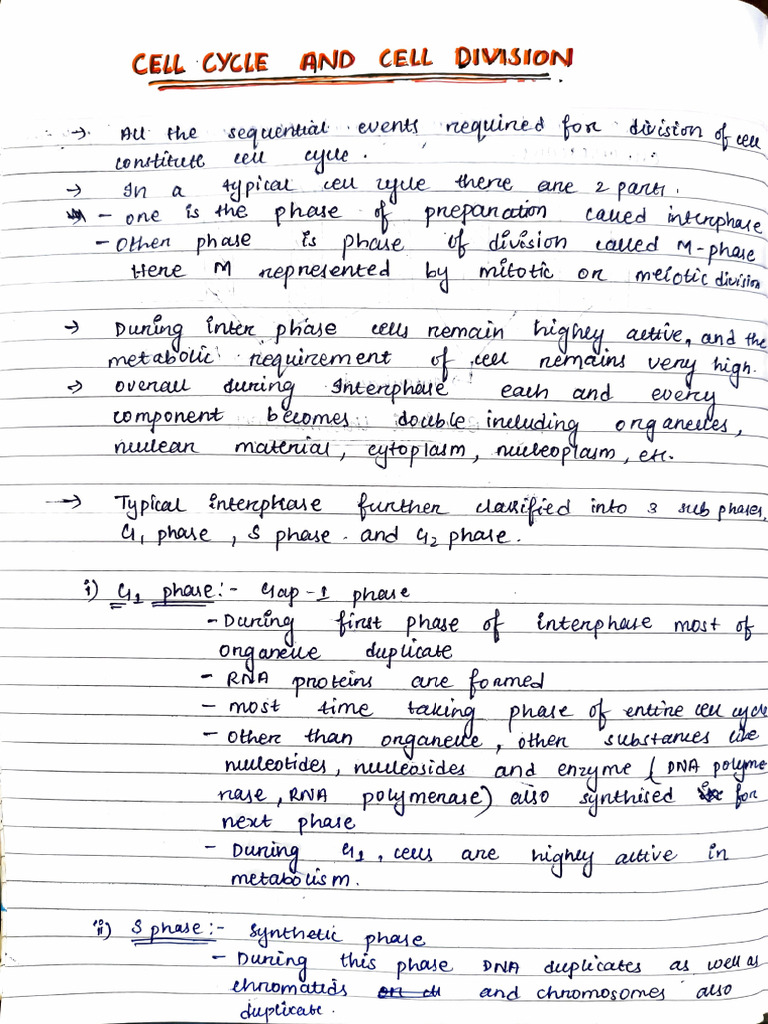 CELL CYCLE AND CELL DIVISION
→ All the sequential events required for division of cell
constitute cell cycle.
→ In a typical cell cycle there are 2 parts.
- one is the phase of preparation called interphase
- Other phase is phase of division called M-phase
Here M represented by mitotic or meiotic division
→ During inter phase cells remain highly active, and the
metabolic requirement of cell remains very high.
→ overall during Interphase each and every
component becomes double including organelles,
nuclear material, cytoplasm, nucleoplasm, etc.
→ Typical interphase further classified into 3 sub phases,
G1 phase, S phase. and G2 phase.
i) G1 phase:- Gap-1 phase
- During first phase of interphase most of
organelle duplicate
- RNA proteins are formed
- most time taking phase of entire cell cycle
- Other than organelle, other substances like
nucleotides, nucleosides and enzyme (DNA polyme
rase, RNA polymerase) also synthised for
next phase
- During G1, cells are highly active in
metabolism.
ii) S phase:- Synthetic phase
- During this phase DNA duplicates as well as
chromatids and chromosomes also
duplicate.